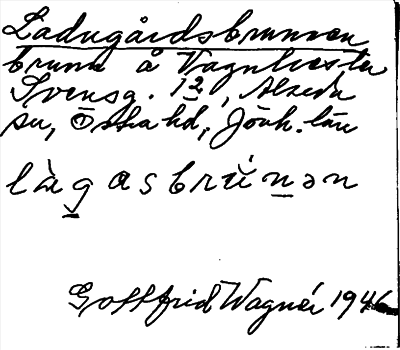 Ladugårdsbrunnen
brunn å Vagnhester
Svensg. 12, Alseda
sn, Östra hd, Jönk. län
làgasbrúnən
Gottfrid Wagnér 1946